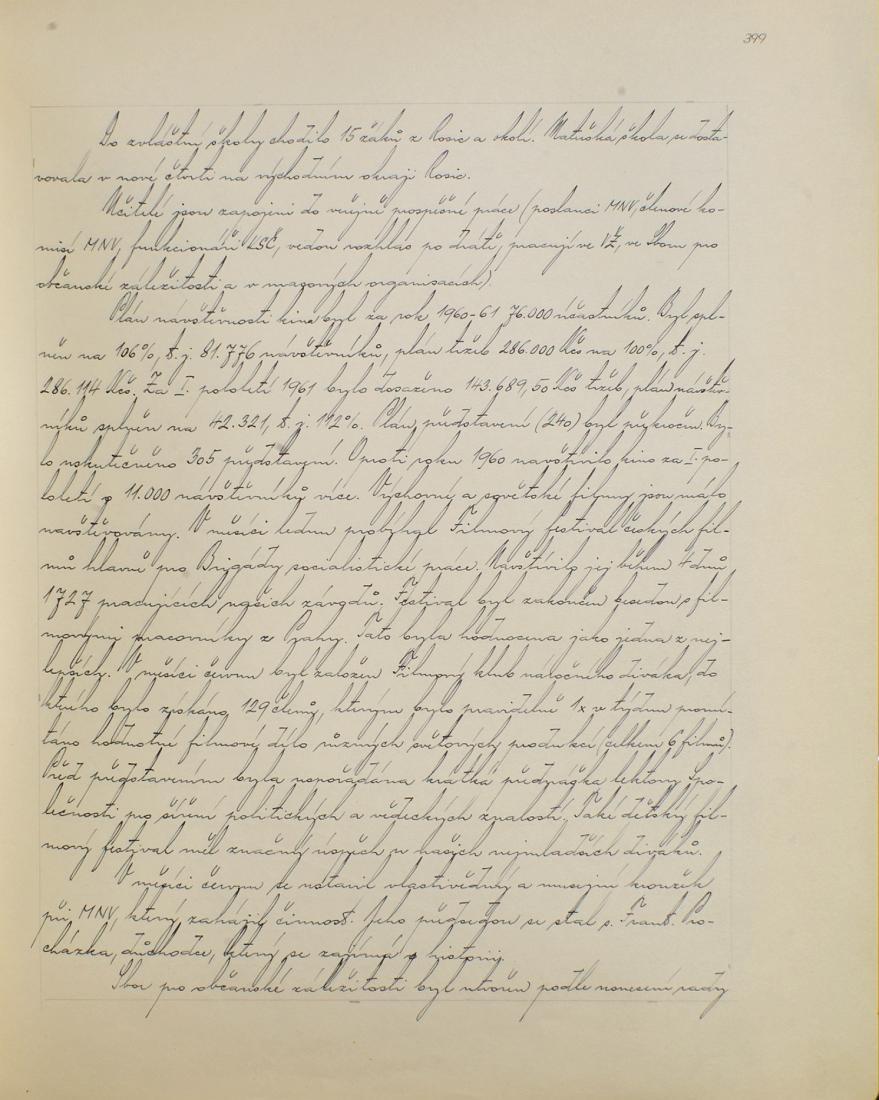 399
Do zvláštní školy chodilo 15 žáků z Rosic a okolí. Mateřská škola se dosta-
vovala v nové čtvrti na východním okraji Rosic.
Učitelé jsou zapojeni do veřejně prospěšné práce (poslanci MNV, členové ko-
misí MNV, funkcionáři KSČ, vedou rozhlas po drátě, pracují ve VŽ, ve Sboru pro
občanské záležitosti a v masových organisacích).
Plán návštěvnosti kina byl za rok 1960-61 76.000 účastníků. Byl spl-
něn na 106%, t. j. 81.776 návštěvníků, plán tržeb 286.000 Kčs na 100%, t. j.
286.114 Kčs. Za I. pololetí 1961 bylo dosaženo 143.689,50 Kčs tržeb, plán návštěv-
níků splněn na 42.321, t. j. 112%. Plán představení (240) byl překročen. By-
lo uskutečněno 305 představení. Oproti roku 1960 navštívilo kino za I. po-
loletí o 11.000 návštěvníků více. Výchovné a sovětské filmy jsou málo
navštěvovány. V měsíci lednu probíhal Filmový festival českých fil-
mů hlavně pro Brigády socialistické práce. Navštívilo jej během 4 dnů
1727 pracujících našich závodů. Festival byl zakončen besedou s fil-
movými pracovníky z Prahy. Tato byla hodnocena jako jedna z nej-
lepších. V měsíci červnu byl založen Filmový klub náročného diváka, do
kterého bylo získáno 129 členů, kterým bylo pravidelně 1x v týdnu promí-
táno hodnotné filmové dílo různých světových produkcí (celkem 6 filmů).
Před představením byla uspořádána krátká přednáška lektory Spo-
lečnosti pro šíření politických a vědeckých znalostí. Také dětský fil-
mový festival měl značný úspěch u našich nejmladších diváků.
V měsíci červnu se ustavil vlastivědný a musejní kroužek
při MNV, který zahájil činnost. Jeho předsedou se stal s. Frant. Pro-
cházka, důchodce, který se zajímá o historii.
Sbor pro občanské záležitosti byl utvořen podle usnesení rady